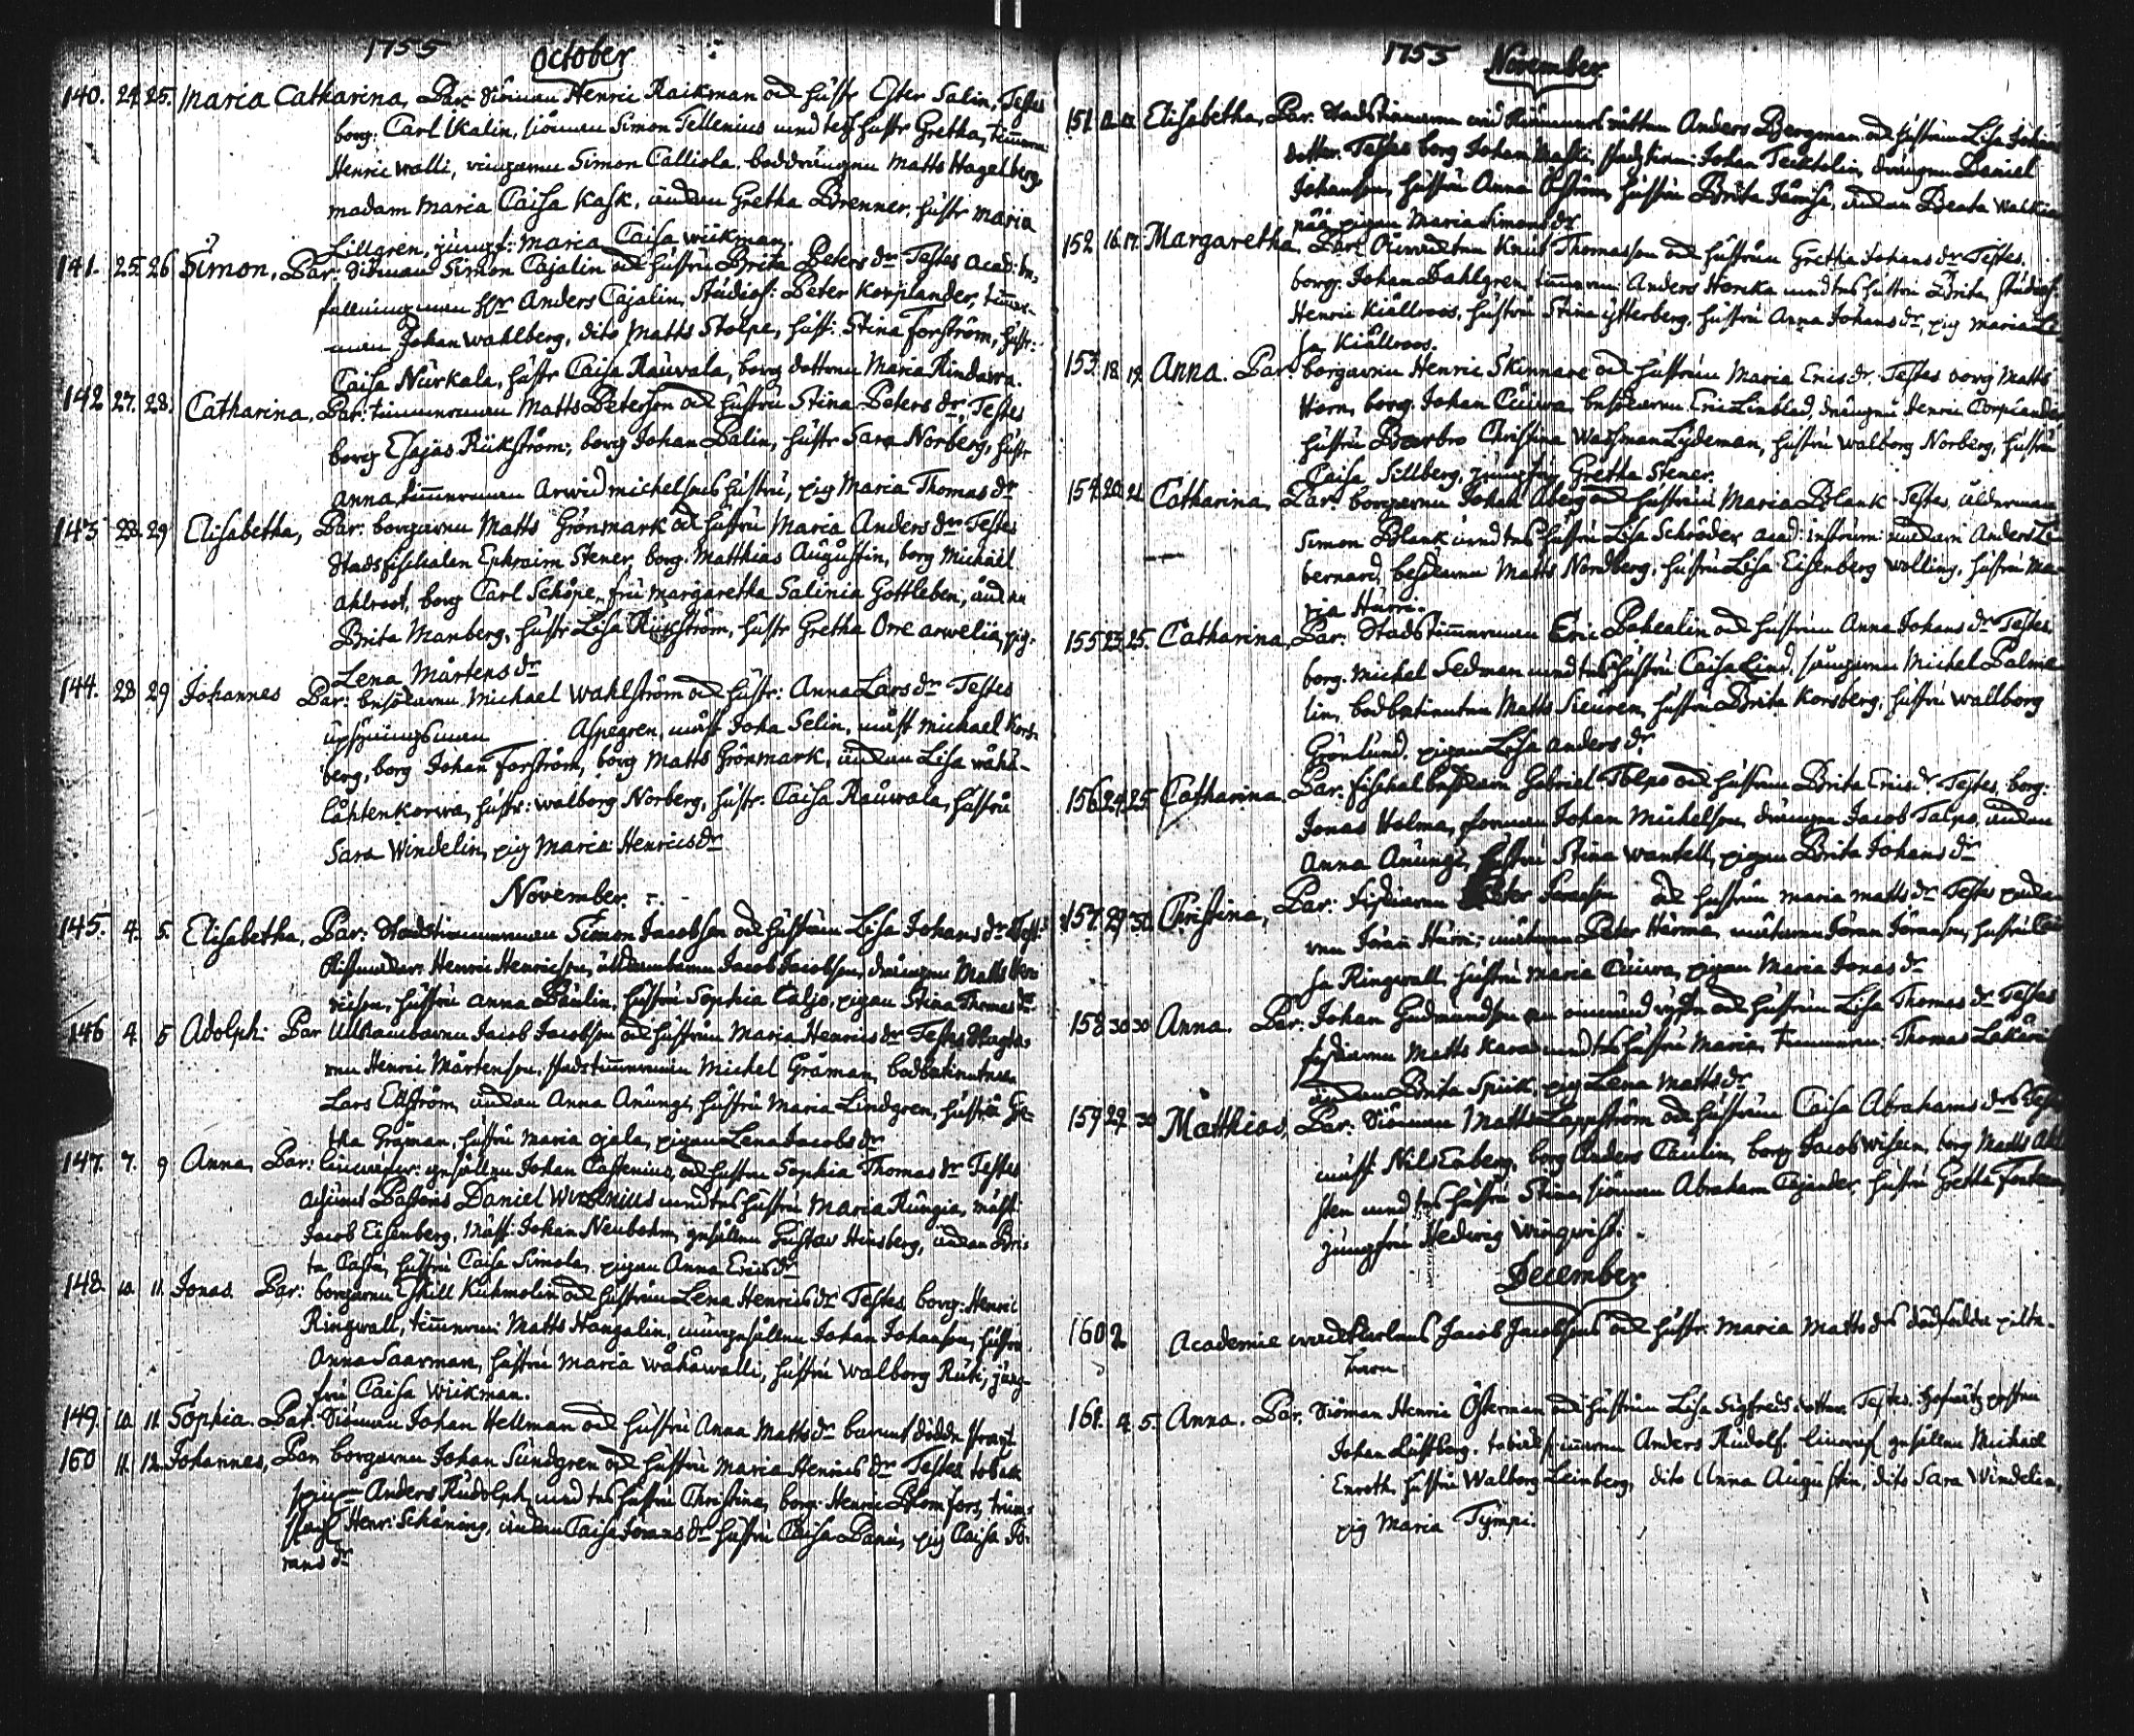 1755 October
140. 24. 25. Maria Catharina, Par. Siöman Henric Raikman och hustr Ester Salin, Testes
borg: Carl Ikalin, siöman Simon Tellenius med dess hustr Gretha, timerm
Henric Walli, Simon Calliola. boddrängen Matts Hagelberg,
madam Maria Caisa Kask, Gretha Brenner, hustr Maria
Lillgren, jungf: Maria Caisa Wiikman.
141. 25. 26 Simon, Par: Siöman Simon Cajalin och hustru Brita Peters dr Testes acad: be-
fallningsman Hr Anders Cajalin, Studios: Peter Korplander, timer-
man Johan Wahlberg, dito Matts Stolpe, hust: Stina Forström, hustr:
Caisa Nurkala, hustr Caisa Rauvala, borg dottren Maria Rindawa.
142 27. 28. Catharina, Par: timmerman Matts Peterson och hustru Stina Peters dr, Testes
borg Esajas Riikström; borg Johan Palin, hustr Sara Norberg, hustr
Anna, timmerman Arwid Michelsons hustru, pig Maria Thomas dr
143 28. 29 Elisabetha, Par: borgaren Matts Grönmark och hustru Maria Anders dr Testes
Stadsfischalen Ephraim Stener, borg. Matthias Augustin, borg Michael
Ahlroot, borg Carl Schöpe, fru Margaretha Salinia Gottleben,
Brita Manberg, hustr Lisa Riikström, hustr Gretha Orre Arwelia, pig.
Lena Mårtens dr
144. 28 29 Johannes Par: besökaren Michael Wahlström och hustr: Anna Lars dr Testes
upsyningsman Aspegren, mäst Joha Selin, mäst Michael Kors-
berg, borg Johan Forström, borg Matts Grönmark, Lisa Wähä-
Lahtenkorwa, hustr: Walborg Norberg, hustr: Caisa Rauwala, hustru
Sara Windelin, pig Maria Henrics dr
November.
145. 4. 5. Elisabetha, Par: Stadstimmerman Simon Jacobson och hustrun Lisa Johans dr Test:
Henric Henricson, Jacob Jacobson, drängen Matts
hustru Anna Paulin, hustru Sophia Caljo, pigan Stina Thomas dr
146 4. 5 Adolph. Par Jacob Jacobson och hustrun Maria Henrics dr Testes
Henric Mårtenson, stadstimerman Michel Gråman, bodbetienten
Lars Ekström, Anna Anungi, hustru Maria Lindgren, hustru Gre-
tha Gråman, hustru Maria Ojala, pigan Lena Jacobs dr
147. 7. 9 Anna, Par: linewäfw: gesällen Johan Castenius, och hustru Sophia Thomas dr Testes
Daniel med dess hustru Maria Rungia, mäst
Jacob Eisenberg, Mäst: Johan Neubohm, gesällen Gustav Hinsberg, Bri-
ta hustru Caisa Simola, pigan Anna Erics dr
148. 10. 11. Jonas. Par: borgaren Eskill Kuhmolin och hustrun Lena Henrics dr Testes borg: Henric
Ringwall, timerm: Matts Hangalin, murgesällen Johan Johanson, hustru
Anna Saarman, hustru Maria Wähäwalli, hustru Walborg Ruti, jung-
fru Caisa Wiikman.
149. 10. 11. Sophia. Par: Siöman Johan Hellman och hustru Anna Matts dr barnet dödde strax
160 11. 12 Johannes, Par: borgaren Johan Sundgren och hustru Maria Henrics dr Testes tobak
spin: Anders Rudolph, med dess hustru Christina, borg: Henric Blomfors,
Henr: Schäning, Caisa Jörans dr hustru Caisa Panu, pig Caisa Jö-
rans dr
1755 November
151. 12. 12. Elisabetha, Par. Stadstimmerman Anders Bergman och hustrun Lisa Johans
dotter. Testes borg Johan Maski, stadztim: Johan Tecktolin, drängen Daniel
Johanson, hustru Anna Öström, hustru Brita Jämsä, Beata Walkia-
pää pigan Maria Simons dr
152 16. 17. Margaretha. Par: Knut Thomasson och hustrun Gretha Johans dr Testes.
borg: Johan Dahlgren timerm: Anders Honka med dess hustru Brita, studios:
Henric Kiällroos, hustru Stina Ytterberg, hustru Anna Johans dr, pig Maria Li-
sa Kiällroos.
153. 18. 19. Anna. Par: borgaren Henric Skinnare och hustrun Maria Erics dr. Testes borg Matts
Horn, borg. Johan Cuiwa, besökaren Eric Linblad, drängen Henric Corplander
hustru Barbro Christina Wassman Lydeman, hustru Walborg Norberg, hustru
Caisa Sillberg, jungfru Gretha Stener.
154. 20. 21. Catharina, Par: borgaren Johan Åberg och hustrun Maria Blank Testes, ålderman
Simon Blank med dess hustru Lisa Schröder acad: instrum: Anders Li-
bernard, besökaren Matts Nordberg, hustru Lisa Eisenberg Wolling, hustru Ma-
ria Harri.
155 23. 25. Catharina, Par: Stadstimmerman Eric Pahealin och hustrun Anna Johans dr Testes.
borg. Michel Sedman med dess hustru Caisa Lind, Michel Palme-
lin, bodbetienten Matts Sieuren, hustru Brita Korsberg, hustru Wallborg
Grönlund, pigan Lisa Anders dr
156 24. 25 Catharina. Par: Gabriel Tolpo och hustrun Brita Erics dr. Testes, borg:
Jonas Holma, forman Johan Michelson, drängen Jacob Talpo,
Anna Anungi, hustru Stina Wantell, pigan Brita Johans dr
157. 29. 30. Christina, Par: fiskaren Peter och hustrun Maria Matts dr Testes
Jöran Harri; Peter Harma, Jöran Jöranson, hustru Lo-
sa Ringwall, hustru Maria Cuiwa, pigan Maria Jonas dr
158 30 30 Anna. Par: Johan Gudmundson och hustrun Lisa Thomas dr Testes
fiskaren Matts Karo med dess hustru Maria, timmerm: Thomas Lakari
Brita Spiik, pig Lena Matts dr
159 29. 30 Matthias, Par: Siöman Matts Lappström och hustrun Caisa Abrahams dr Testes
mäst: Nils Enberg, borg Anders Caulin, borg Jacob Wisein, borg Matts Ahl-
sten med dess hustru Stina, siöman Abraham Cajander, hustru Gretha Fonteen,
jungfru Hedwig Winqwist.
December
160 2. Academie Jacob Jacobsons och hustr: Maria Matts drs dödfödde pilte-
barn
161. 4. 5. Anna. Par. Siöman Henric Österman och hustrun Lisa Sigfreds dotter. Testes.
Johan Lustberg. Anders Rudolf. linewäf gesällen Michael
Enroth, hustru Walborg Leinberg, dito Anna Augustin, dito Sara Windelin,
pig Maria Tÿmpi.